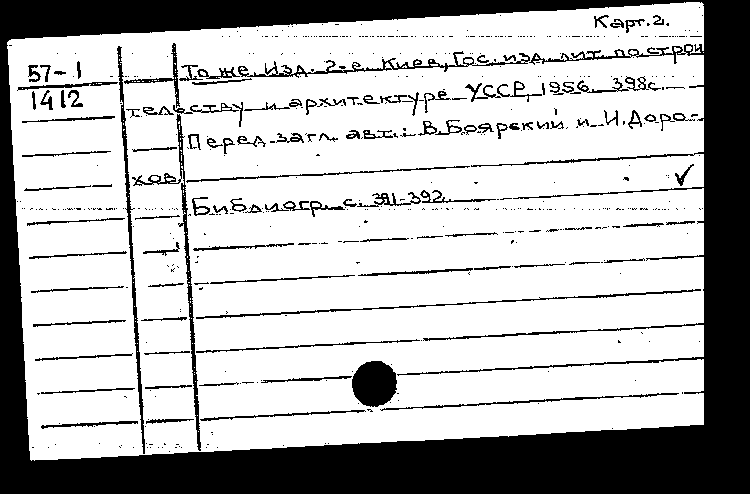 Карт. 2.
57-1
1412
То же. Изд. 2-е. Киев, Гос. изд. лит. по строи
тельству и архитектуре УССР, 1956. 398с.
Перед загл. авт.: В. Боярский и И. Доро-
хов.
Библиогр. с. 391-392.